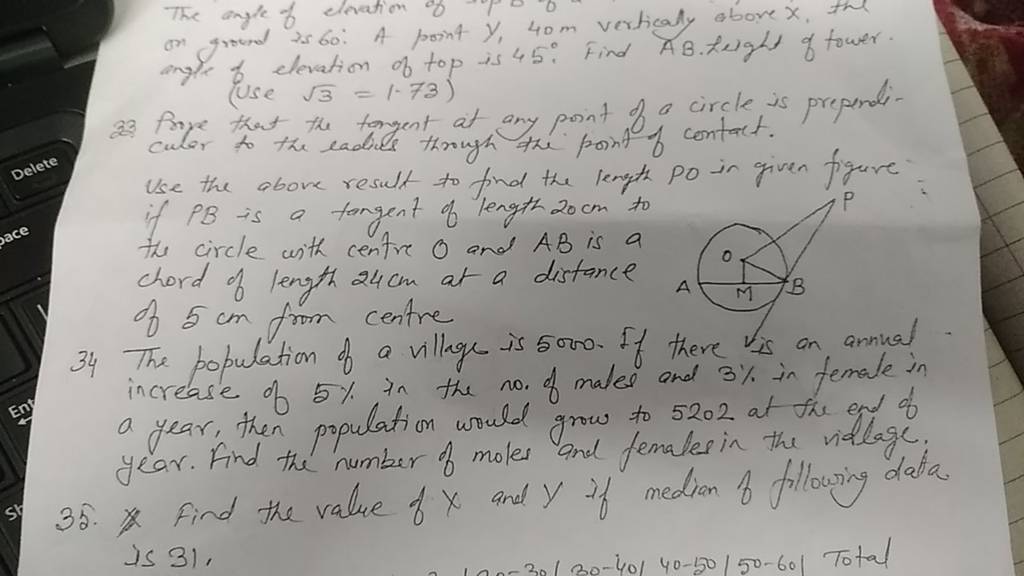 The angle of elevation of
on ground is 60°. A point Y, 40m vertically above X, the
angle of elevation of top is 45°. Find AB. height of tower.
(Use √3 = 1.73)
33 Prove that the tangent at any point of a circle is prependi-
cular to the radius through the point of contact.
Use the above result to find the length PO in given figure
if PB is a tangent of length 20cm to
the circle with centre O and AB is a
chord of length 24cm at a distance
of 5 cm from centre
P
O
A M B
34 The population of a village is 5000. If there is an annual
increase of 5% in the no. of males and 3% in female in
a year, then population would grow to 5202 at the end of
year. Find the number of males and females in the village.
35. Find the value of X and Y if median of following data
is 31.
30-40 | 40-50 | 50-60 | Total
Delete